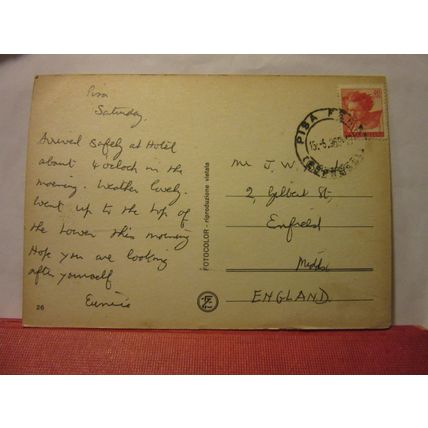 Pisa
Saturday.
Arrived safely at Hotel
about 4 o'cloch in the
morning. Weather lovely.
Went up to the top of
the tower this morning
Hope you are looking
after yourself
Eunice
26
FOTOCOLOR - riproduzione vietata
PISA FERR
15.-5.
Mr J. W.
2, Gilbert St,
Enfield
Middx
ENGLAND.